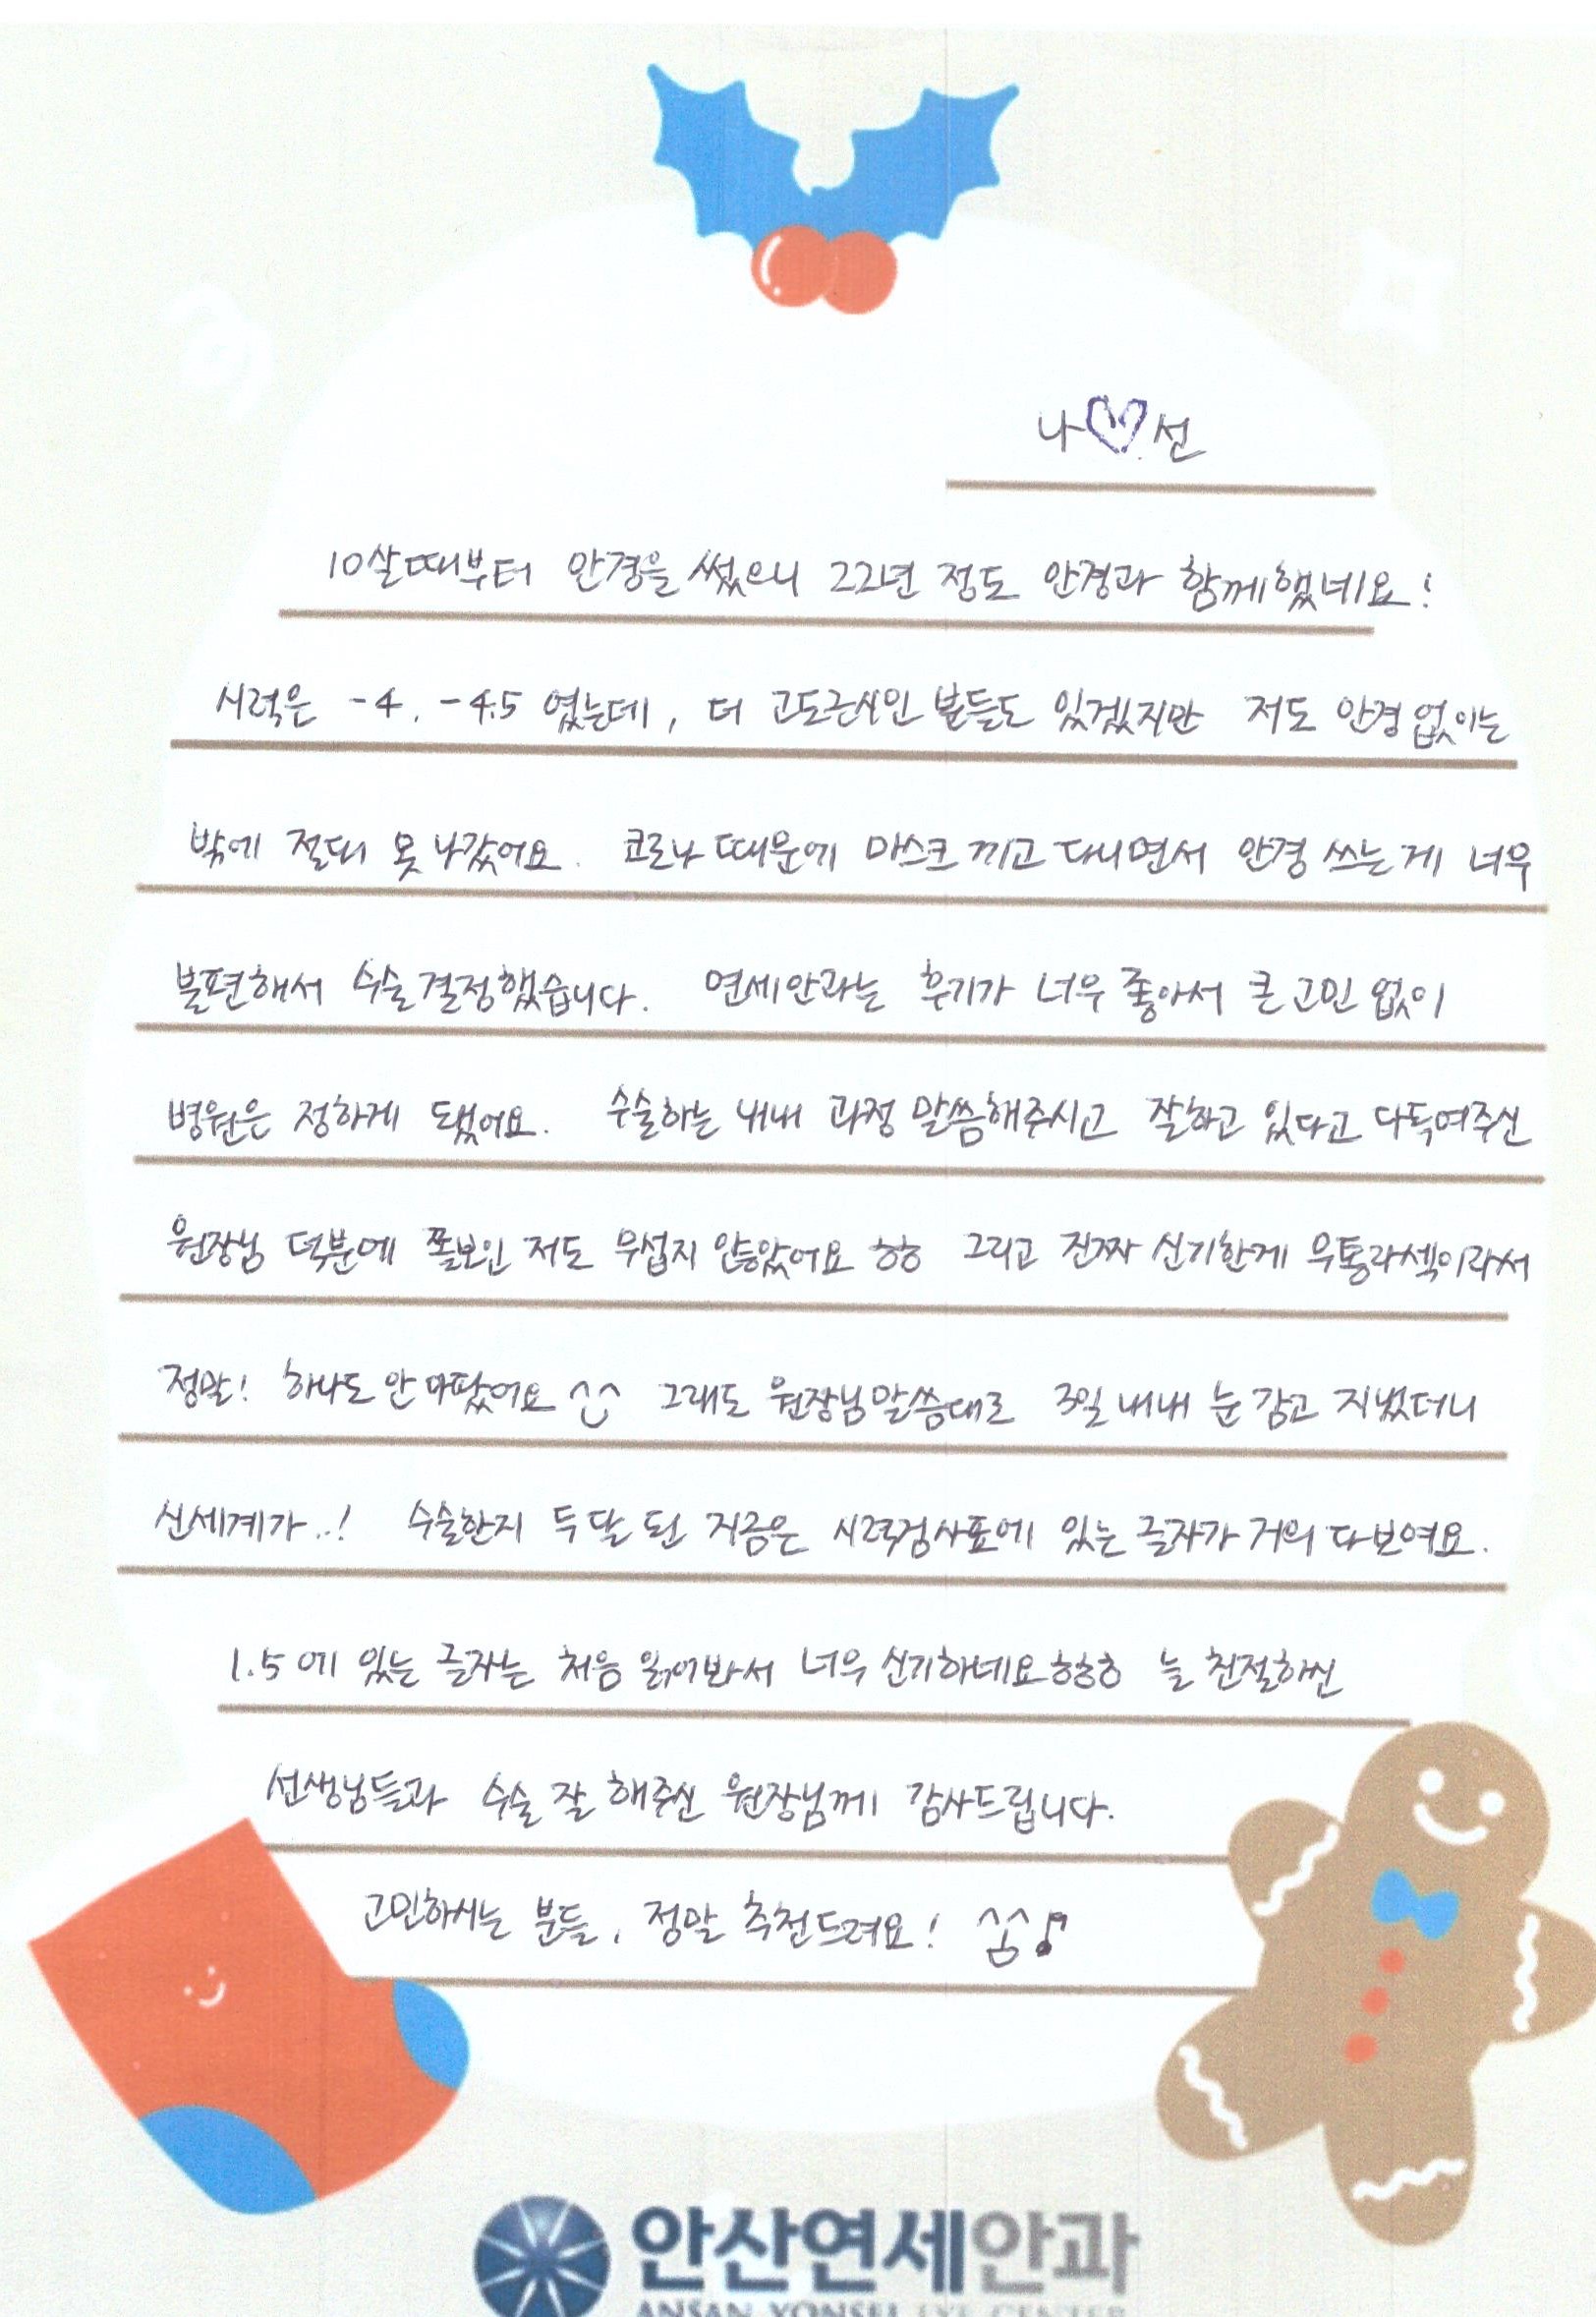 나♡선
10살때부터 안경을 썼으니 22년 정도 안경과 함께했네요!
시력은 -4, -4.5 였는데, 더 고도근시인 분들도 있겠지만 저도 안경없이는
밖에 절대 못 나갔어요. 코로나 때문에 마스크 끼고 다니면서 안경 쓰는 게 너무
불편해서 수술결정했습니다. 연세안과는 후기가 너무 좋아서 큰 고민 없이
병원은 정하게 됐어요. 수술하는 내내 과정 말씀해주시고 잘하고 있다고 다독여주신
원장님 덕분에 쫄보인 저도 무섭지 않았어요 ㅎㅎ 그리고 진짜 신기한게 무통라섹이라서
정말! 하나도 안 아팠어요 ^^ 그래도 원장님말씀대로 3일 내내 눈 감고 지냈더니
신세계가..! 수술한지 두 달 된 지금은 시력검사표에 있는 글자가 거의 다보여요.
1.5에 있는 글자는 처음 읽어봐서 너무 신기하네요ㅎㅎㅎ 늘 친절하신
선생님들과 수술 잘 해주신 원장님께 감사드립니다.
고민하시는 분들, 정말 추천드려요! ^^♪
안산연세안과
ANSAN YONSEI EYE CENTER